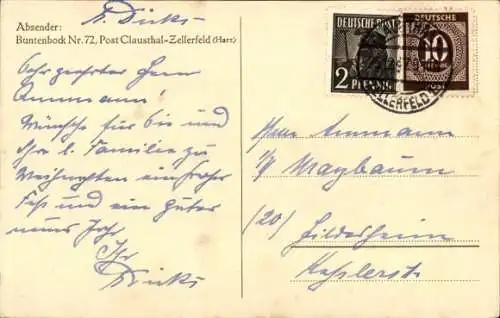 A. Dicks
Absender:
Buntenbock Nr. 72, Post Clausthal-Zellerfeld (Harz)
Sehr geehrter Herr
Ammann!
Wünsche für Sie und
Ihre l. Familie zu
Weihnachten ein frohes
Fest und ein gutes
neues Jahr
Ihr
Dicks
DEUTSCHE POST
2 PFENNIG
DEUTSCHE
10
POST
ZELLERFELD
Herrn Ammann
Maybaum
(20) Hildesheim